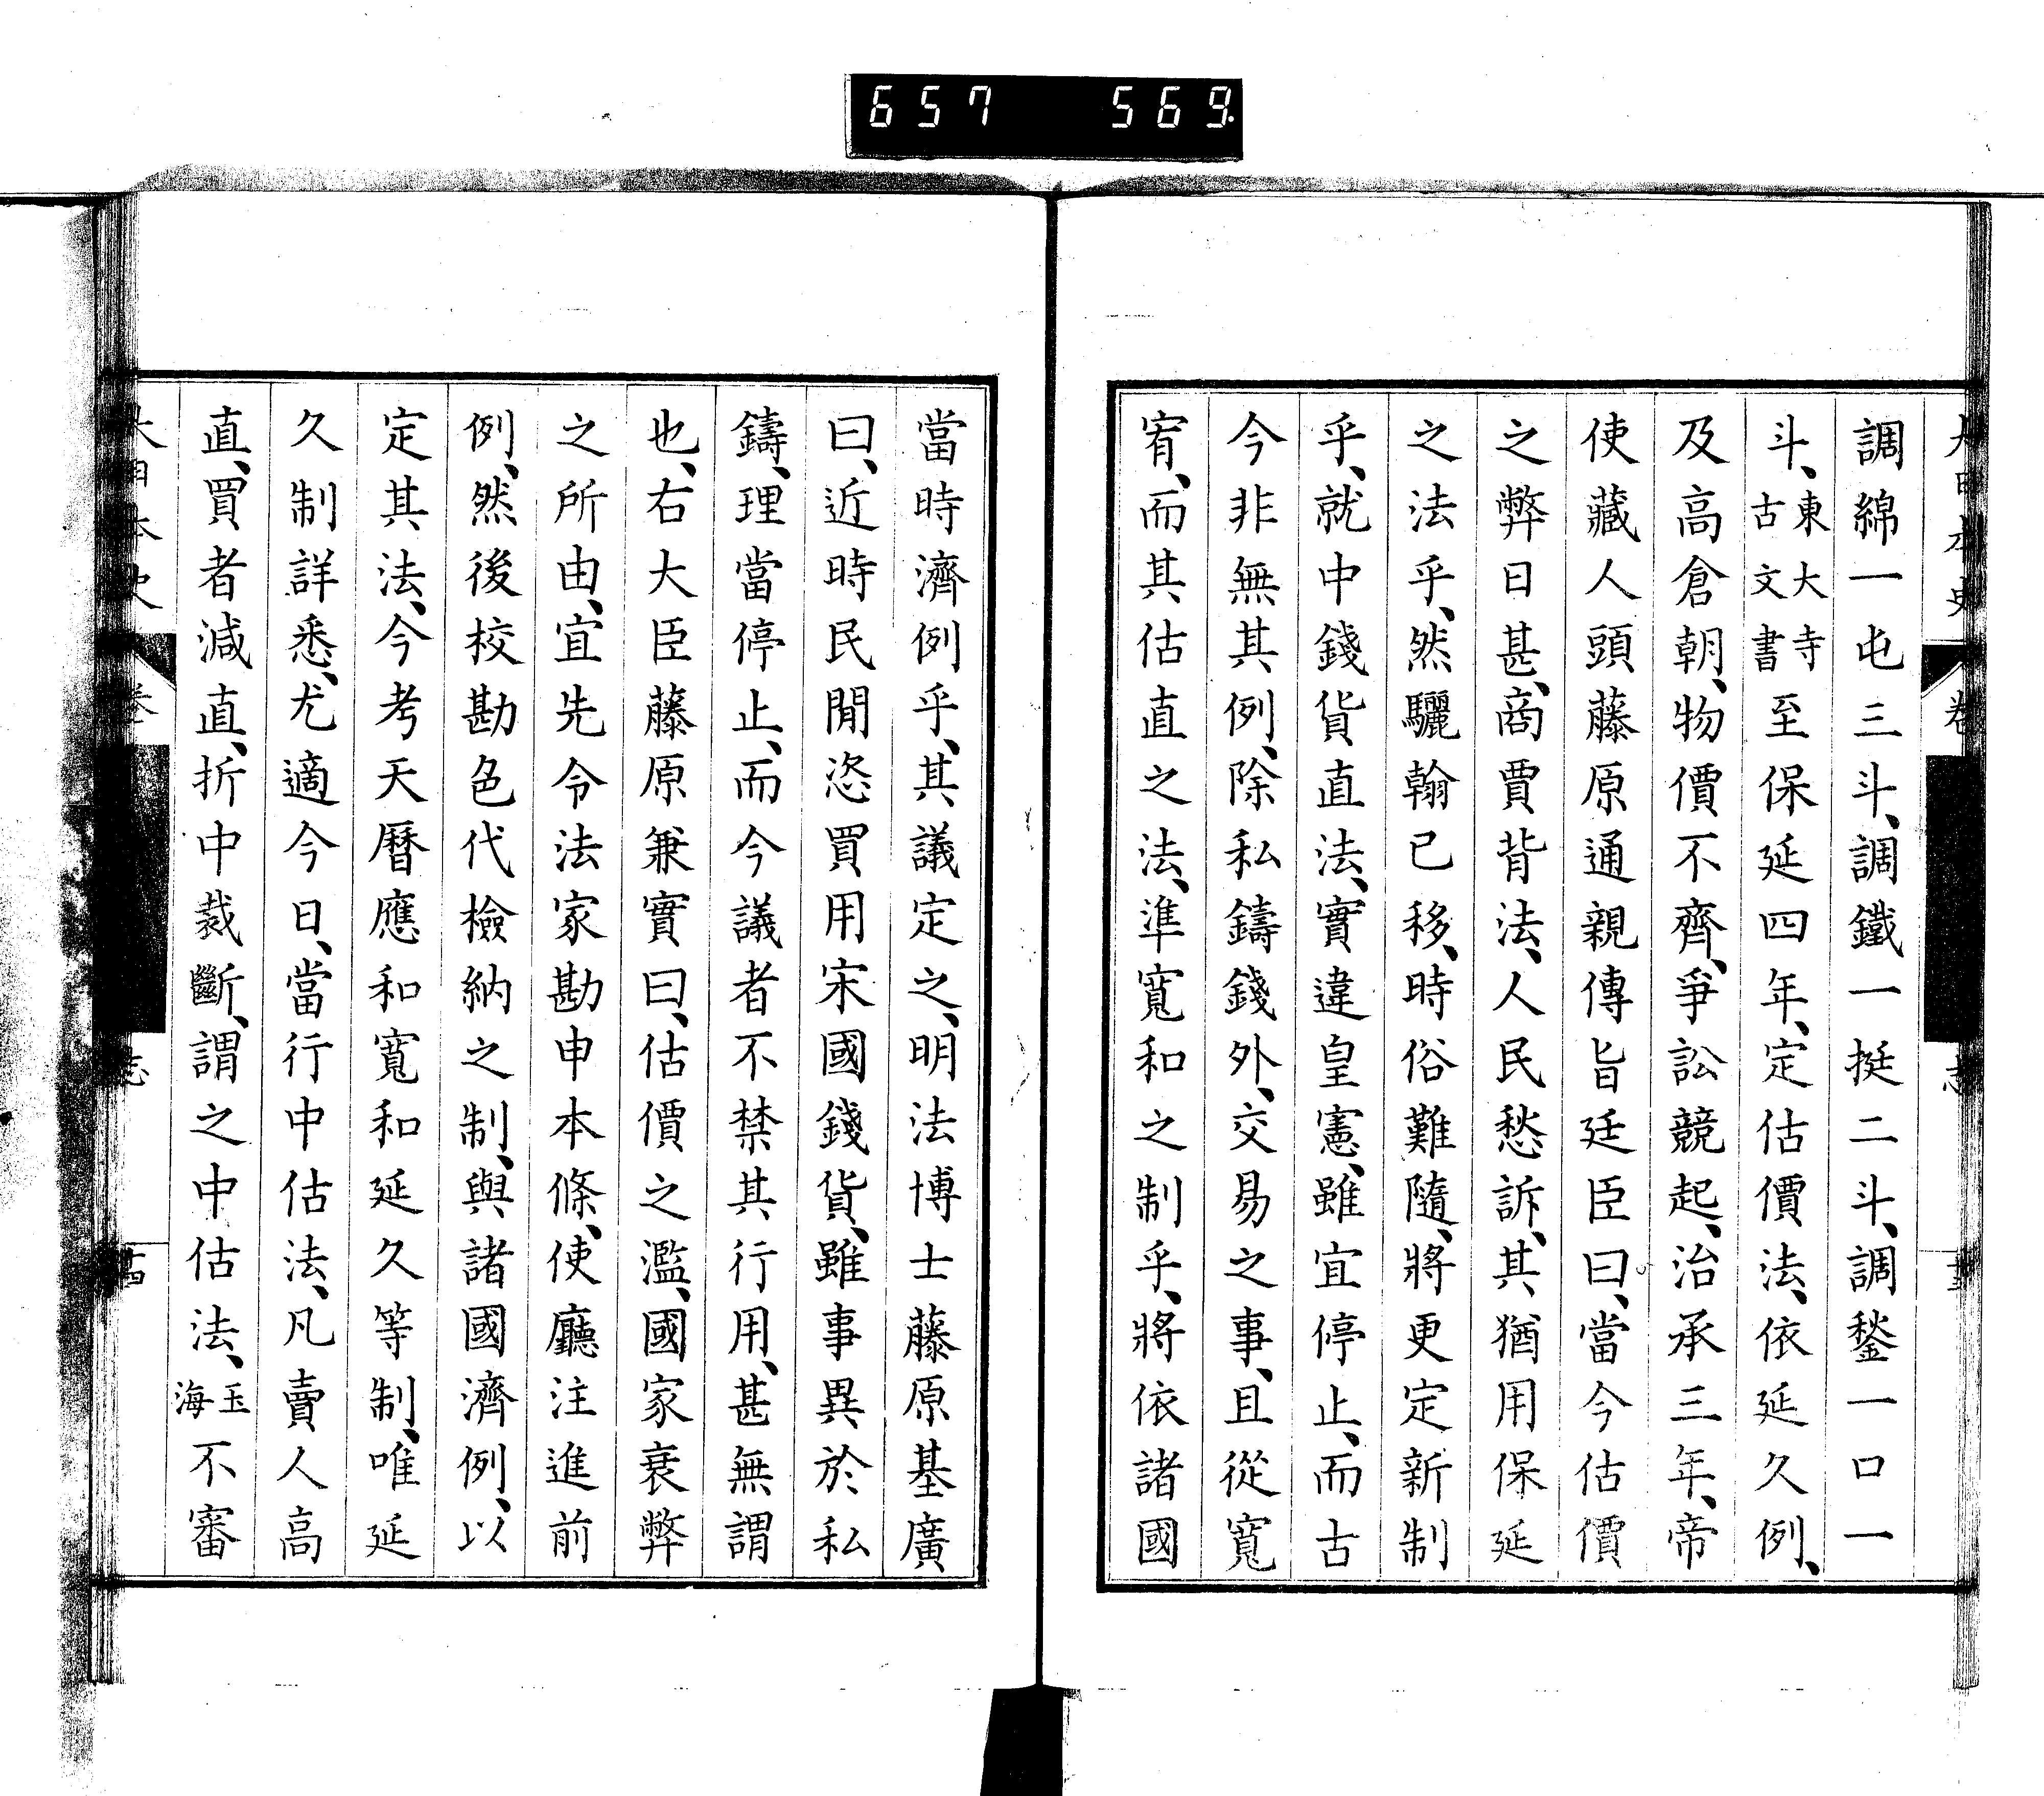 657 569.
大日本史 卷 志
調綿一屯三斗、調鐵一挺二斗、調鍫一口一
斗、東大寺古文書至保延四年、定估價法、依延久例、
及高倉朝、物價不齊、爭訟競起、治承三年、帝
使藏人頭藤原通親傳旨廷臣曰、當今估價
之弊日甚、商賈背法、人民愁訴、其猶用保延
之法乎、然驪翰已移、時俗難隨、將更定新制
乎、就中錢貨直法、實違皇憲、雖宜停止、而古
今非無其例、除私鑄錢外、交易之事、且從寬
宥、而其估直之法、準寬和之制乎、將依諸國
當時濟例乎、其議定之、明法博士藤原基廣
曰、近時民閒恣買用宋國錢貨、雖事異於私
鑄、理當停止、而今議者不禁其行用、甚無謂
也、右大臣藤原兼實曰、估價之濫、國家衰弊
之所由、宜先令法家勘申本條、使廳注進前
例、然後校勘色代檢納之制、與諸國濟例、以
定其法、今考天曆應和寬和延久等制、唯延
久制詳悉、尤適今日、當行中估法、凡賣人高
直、買者減直、折中裁斷、謂之中估法、玉海不審
大日本史 卷 志 十四